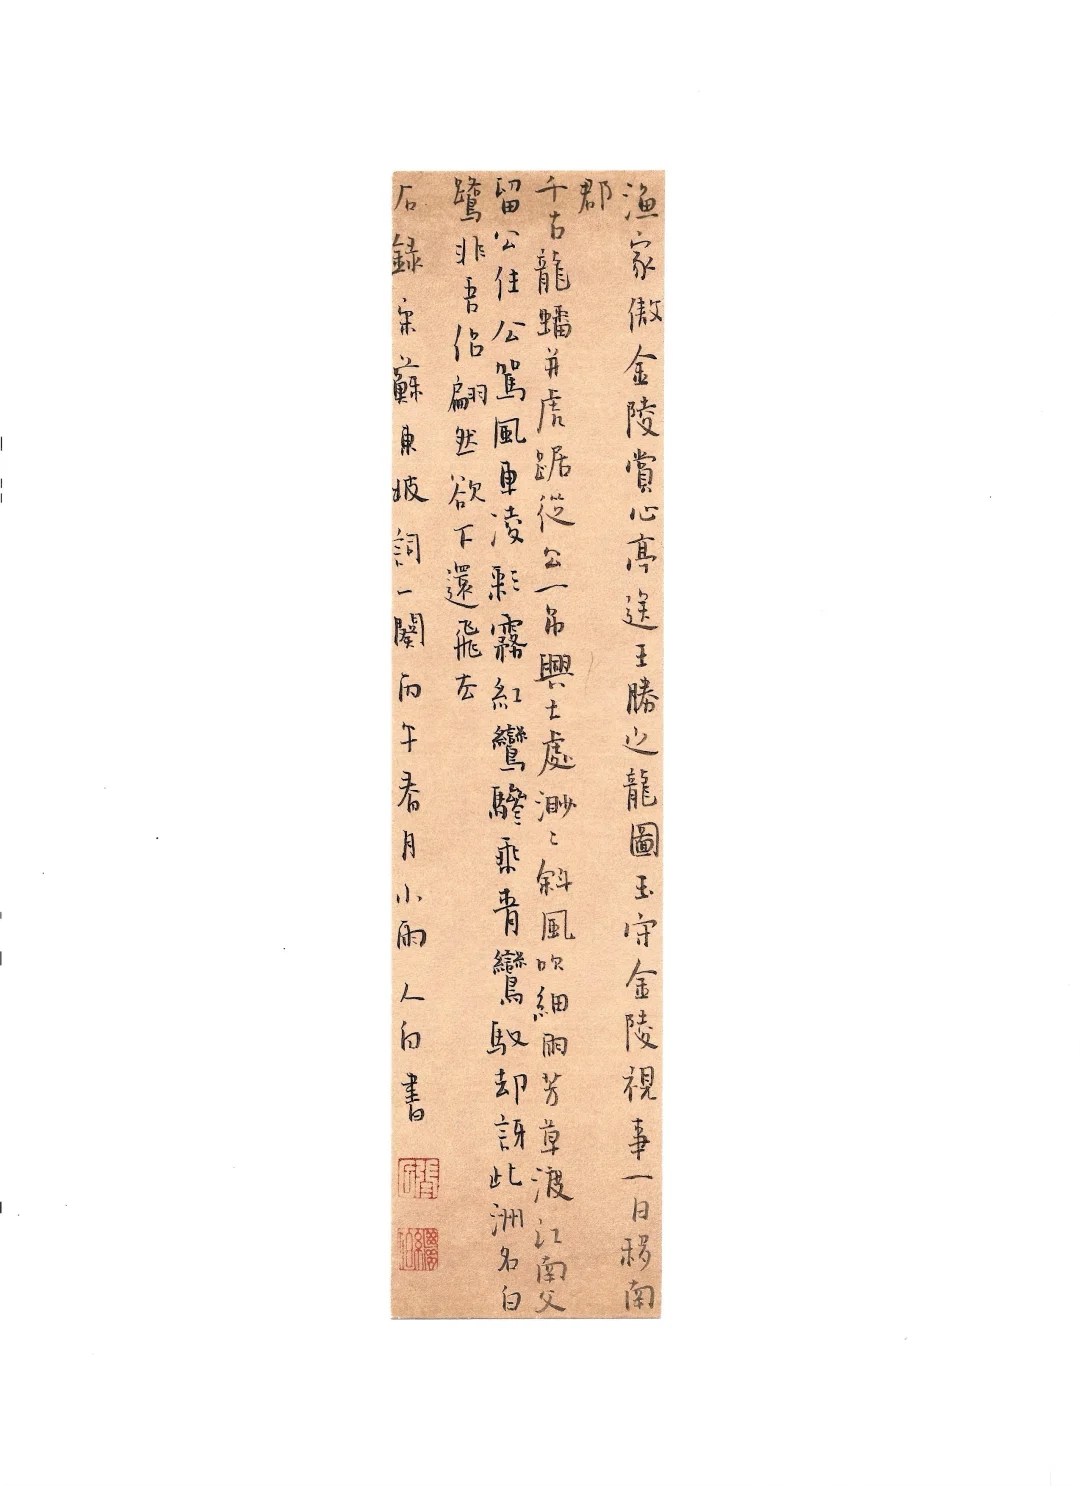 漁家傲金陵賞心亭送王勝之龍圖王守金陵視事一日移南
郡
千古龍蟠并虎踞從公一吊興亡處渺〻斜風吹細雨芳草渡江南父
留公住公駕風車凌彩霧紅鸞驂乘青鸞馭却訝此洲名白
鷺非吾侶翩然欲下還飛去
右錄宋蘇東坡詞一闋丙午春月小雨人白書